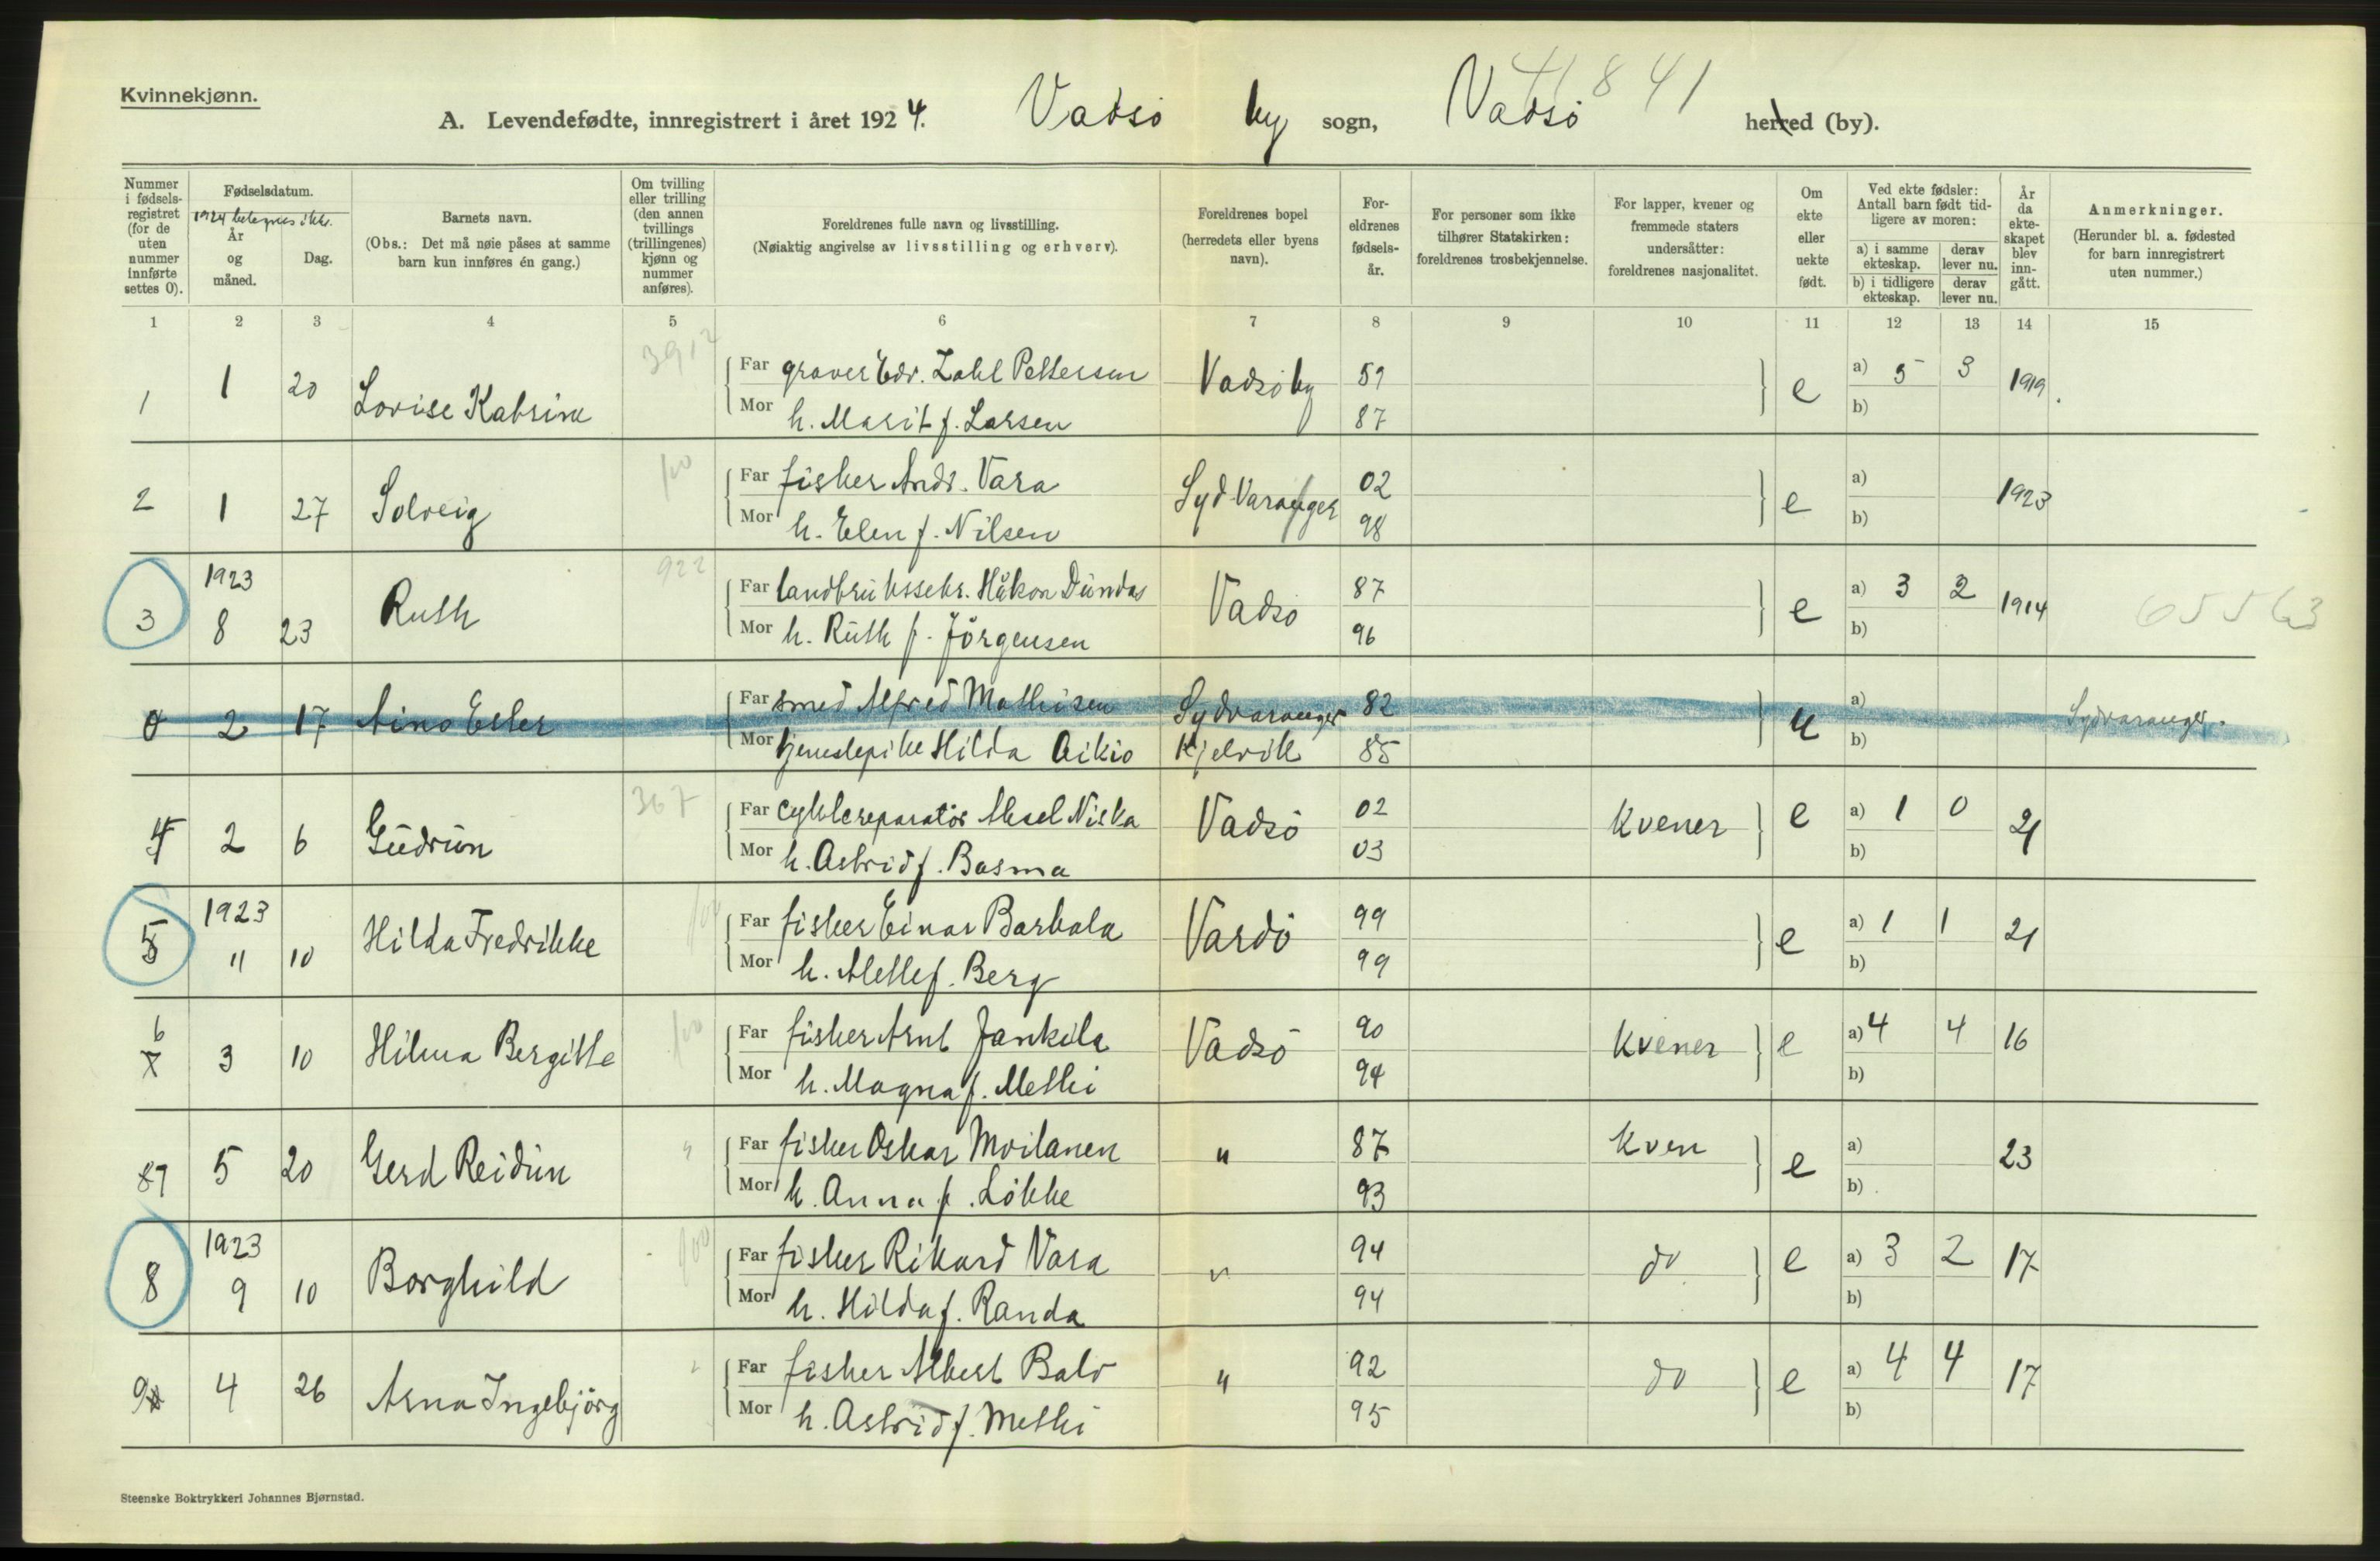 Kvinnekjønn.
41841
A. Levendefødte, innregistrert i året 1924. Vadsö by sogn, Vadsö herred (by).
Nummer i fødsels-registret (for de uten nummer innførte settes 0).
Fødselsdatum.
1924 betegnes ikke.
År og måned.
Dag.
Barnets navn.
(Obs.: Det må nøie påses at samme barn kun innføres én gang.)
Om tvilling eller trilling (den annen tvillings (trillingenes) kjønn og nummer anføres).
Foreldrenes fulle navn og livsstilling.
(Nøiaktig angivelse av livsstilling og erhverv).
Foreldrenes bopel (herredets eller byens navn).
For-eldrenes fødsels-år.
For personer som ikke tilhører Statskirken: foreldrenes trosbekjennelse.
For lapper, kvener og fremmede staters undersåtter: foreldrenes nasjonalitet.
Om ekte eller uekte født.
Ved ekte fødsler: Antall barn født tid-ligere av moren:
a) i samme ekteskap.
derav lever nu.
b) i tidligere ekteskap.
derav lever nu.
År da ekte-skapet blev inn-gått.
Anmerkninger.
(Herunder bl. a. fødested for barn innregistrert uten nummer.)
1 2 3 4 5 6 7 8 9 10 11 12 13 14 15
1 1 20 Lovise Katrine Far graver Edv. Zahl Pettersen Vadsö by 59 e a) 5 3 1919
Mor h. Marit f. Larsen 87 b)
2 1 27 Solveig Far fisker Andr. Vara Syd-Varanger 02 e a) 1923
Mor h. Elen f. Nilsen 98 b)
922
3 1923 8 23 Ruth Far landbrukssekr. Håkon Dundas Vadsö 87 e a) 3 2 1914 65563
Mor h. Ruth f. Jörgensen 96 b)
0 2 17 Aino Ester Far smed Alfred Mathisen Sydvaranger 82 u a) Sydvaranger.
Mor tjenestepike Hilda Aikio Kjelvik 85 b)
367
4 2 6 Gudrun Far cykkelreparatör Aksel Niska Vadsö 02 Kvener e a) 1 0 21
Mor h. Astrid f. Basma 03 b)
5 1923 11 10 Hilda Fredrikke Far fisker Einar Barkala Vardö 99 e a) 1 1 21
Mor h. Mette f. Berg 99 b)
6 3 10 Hilma Bergitte Far fisker Arnt Jankila Vadsö 90 Kvener e a) 4 4 16
Mor h. Magna f. Methi 94 b)
87 5 20 Gerd Reidun " Far fisker Oskar Moilanen " 87 Kven e a) 23
Mor h. Anna f. Lökke 93 b)
8 1923 9 10 Borghild Far fisker Rikard Vara " 94 do e a) 3 2 17
Mor h. Hilda f. Randa 94 b)
9 4 26 Arna Ingebjörg Far fisker Albert Balo " 92 do e a) 4 4 17
Mor h. Astrid f. Methi 95 b)
Steenske Boktrykkeri Johannes Bjørnstad.